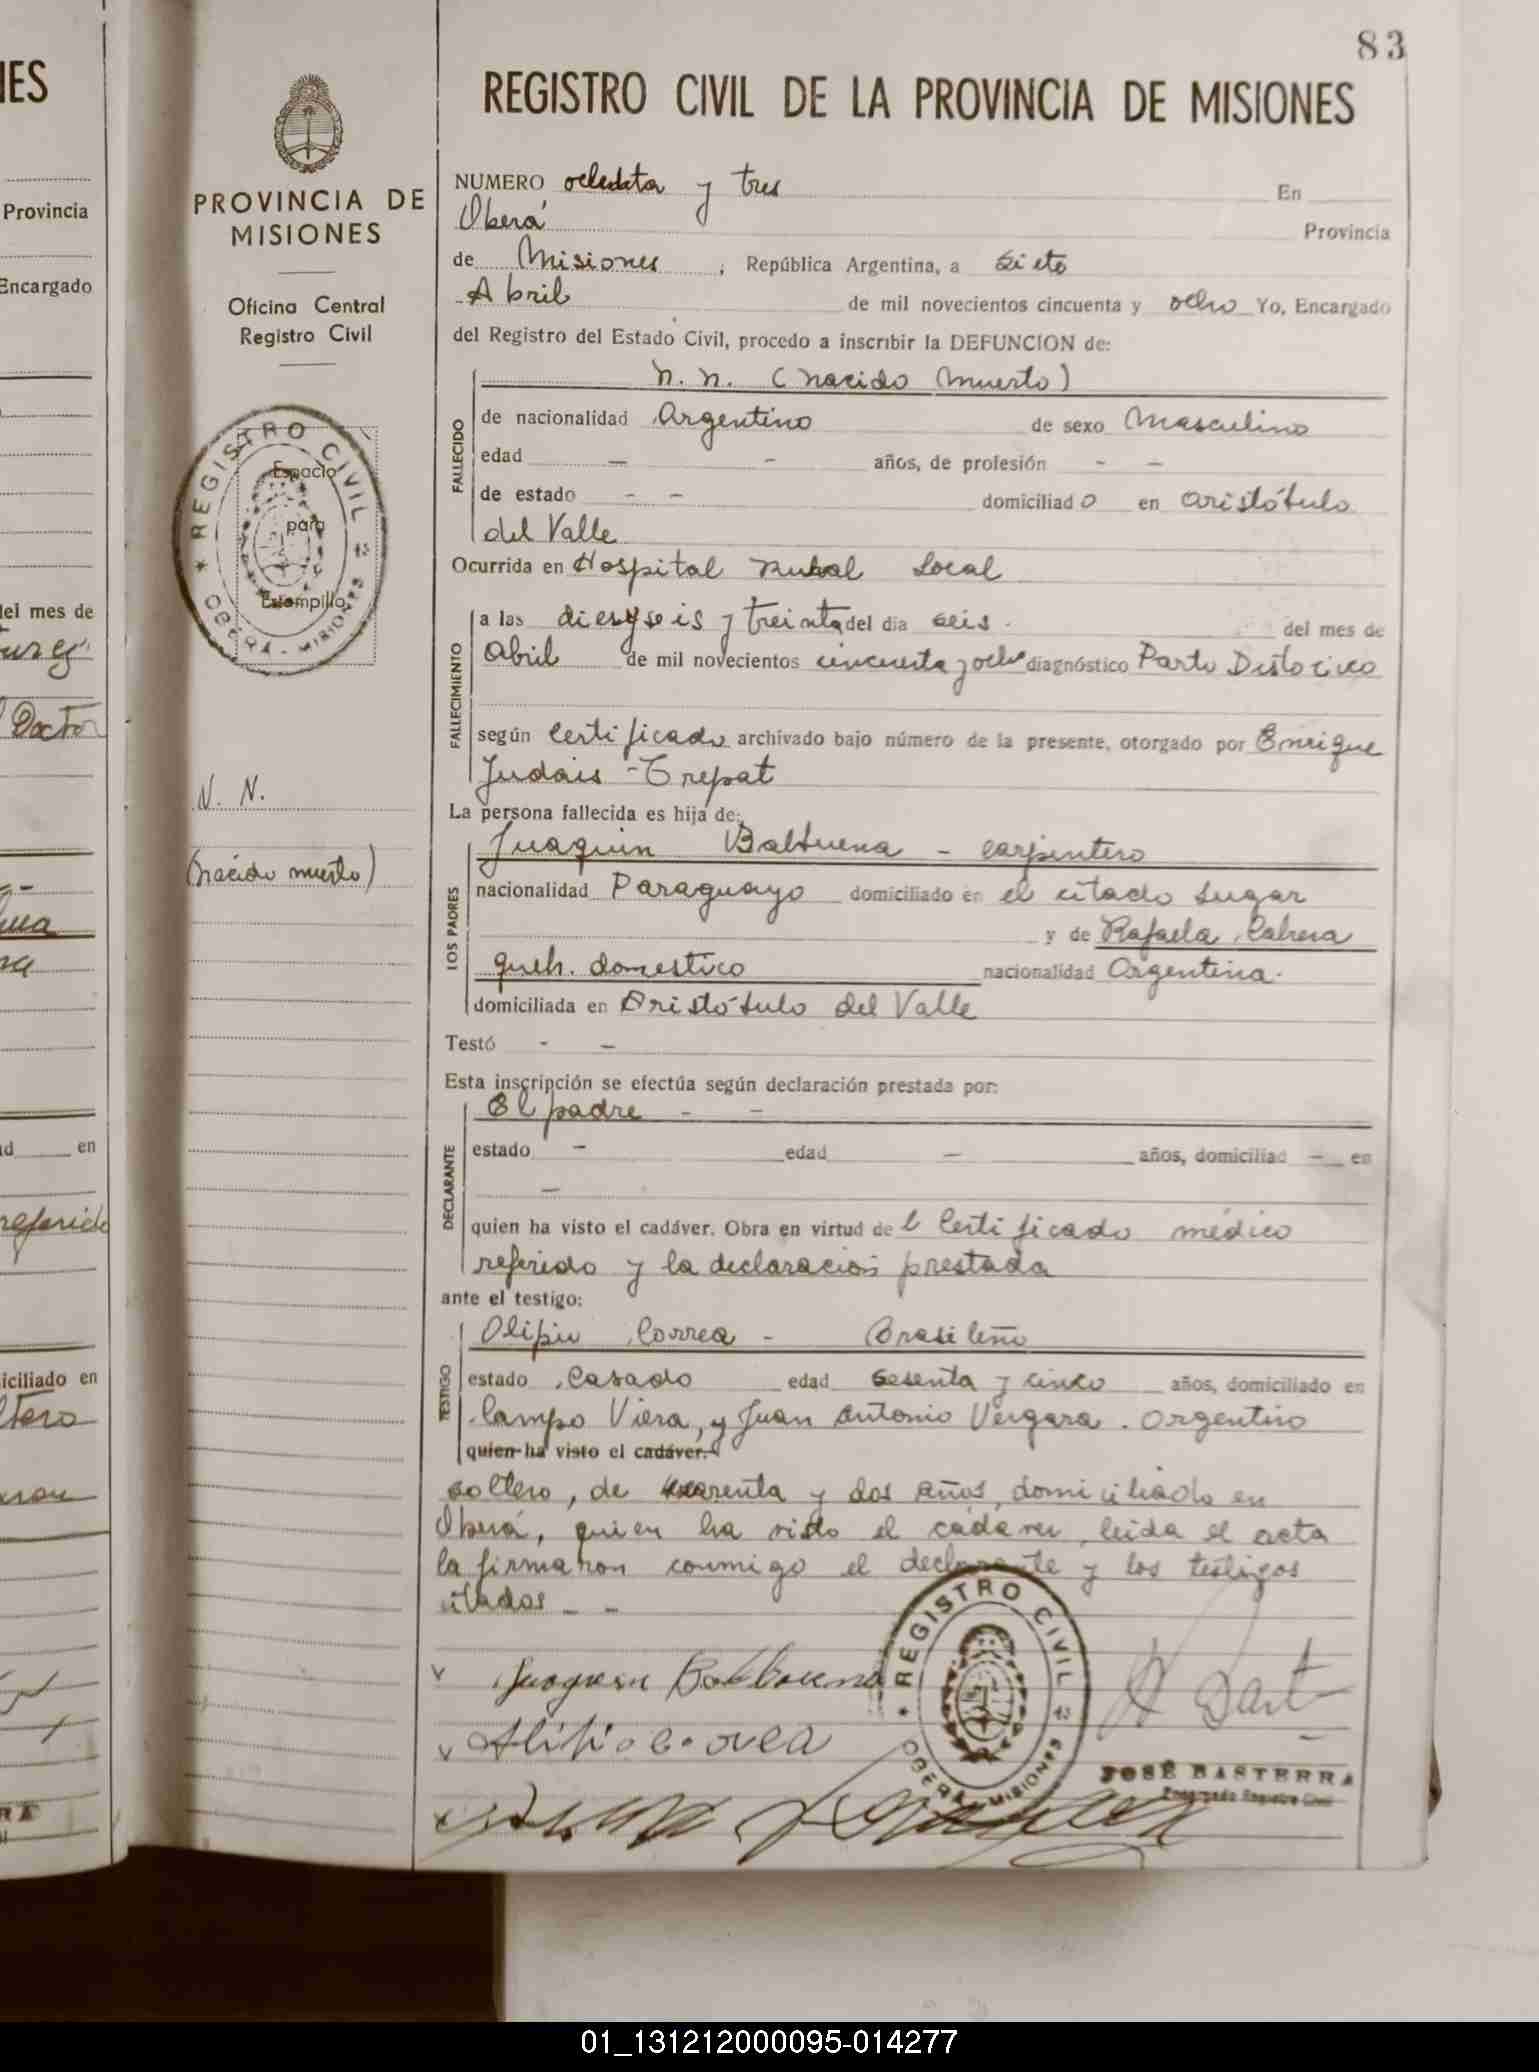 83
REGISTRO CIVIL DE LA PROVINCIA DE MISIONES
NUMERO ochenta y tres En
Oberá Provincia
de Misiones, República Argentina, a siete
Abril de mil novecientos cincuenta y ocho Yo, Encargado
del Registro del Estado Civil, procedo a inscribir la DEFUNCION de:
N. N. (nacido muerto)
FALLECIDO
de nacionalidad Argentino de sexo Masculino
edad — - años, de profesión - —
de estado - - domiciliado en Aristóbulo
del Valle
Ocurrida en Hospital Rural Local
FALLECIMIENTO
a las diesyseis y treinta del dia seis. del mes de
Abril de mil novecientos cincuenta y ocho diagnóstico Parto Distocico
según Certificado archivado bajo número de la presente, otorgado por Enrique
Judais - Trepat
La persona fallecida es hija de:
LOS PADRES
Juaquin Balbuena - carpintero
nacionalidad Paraguayo domiciliado en el citado lugar
y de Rafaela Cabrera
queh. domestico nacionalidad Argentina.
domiciliada en Aristóbulo del Valle
Testó - —
Esta inscripción se efectúa según declaración prestada por:
DECLARANTE
El padre - -
estado — edad — años, domiciliad — en
—
quien ha visto el cadáver. Obra en virtud del Certificado médico
referido y la declaración prestada
ante el testigo:
TESTIGO
Olipio Correa - Brasileño
estado Casado edad sesenta y cinco años, domiciliado en
Campo Viera, y Juan Antonio Vergara. Argentino
quien ha visto el cadáver.
soltero, de cuarenta y dos años, domiciliado en
Oberá, quien ha visto el cadaver, leida el acta
la firmaron conmigo el declarante y los testigos
citados - -
Juaquin Balbuena
REGISTRO CIVIL
OBERA - MISIONES
JOSÉ BASTERRA
Encargado Registro Civil
PROVINCIA DE
MISIONES
Oficina Central
Registro Civil
REGISTRO CIVIL
OBERA - MISIONES
Espacio
para
Estampilla
N. N.
(nacido muerto)
NES
Provincia
Encargado
del mes de
Doctor
en
referido
iciliado en
01_131212000095-014277